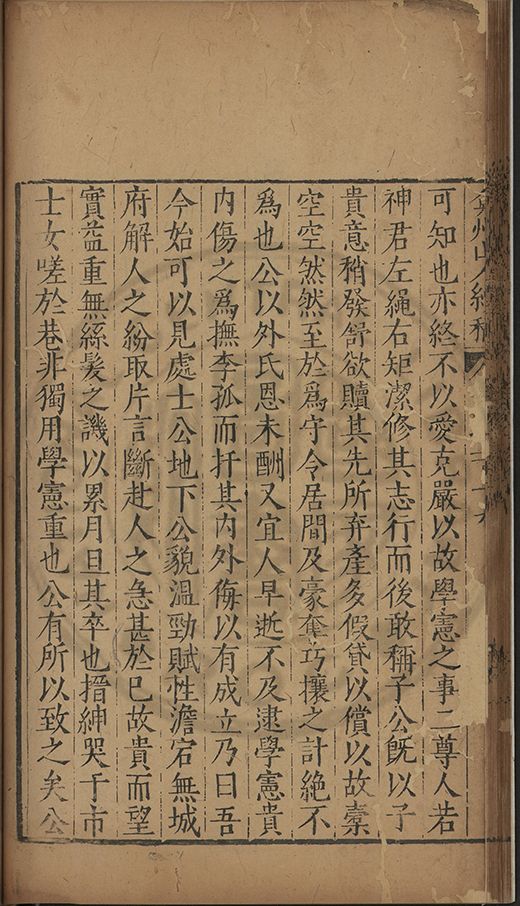 弇州山人續稿
可知也亦終不以愛克嚴以故學憲之事二尊人若
神君左繩右矩潔修其志行而後敢稱子公旣以子
貴意稍發舒欲贖其先所弃產多假貸以償以故橐
空空然然至於爲守令居間及豪奪巧攘之計絶不
爲也公以外氏恩未酬又宜人早逝不及逮學憲貴
内傷之爲撫李孤而扞其内外侮以有成立乃曰吾
今始可以見處士公地下公貌溫勁賦性澹宕無城
府解人之紛取片言斷赴人之急甚於已故貴而望
實益重無絲髮之譏以累月旦其卒也搢紳哭于市
士女嗟於巷非獨用學憲重也公有所以致之矣公